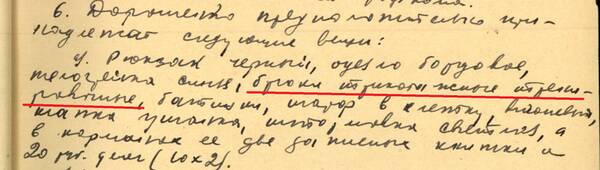 6. Дорошенко предположительно при-
надлежат следующие вещи:
Рюкзак черный, одеяло бордовое,
телогрейка синяя, брюки трикотажные трени-
ровочные, ботинки, шарф в клетку,
шапка ушанка, штормовка светлая, а
в карманах ее две записные книжки и
20 руб. денег (10х2).